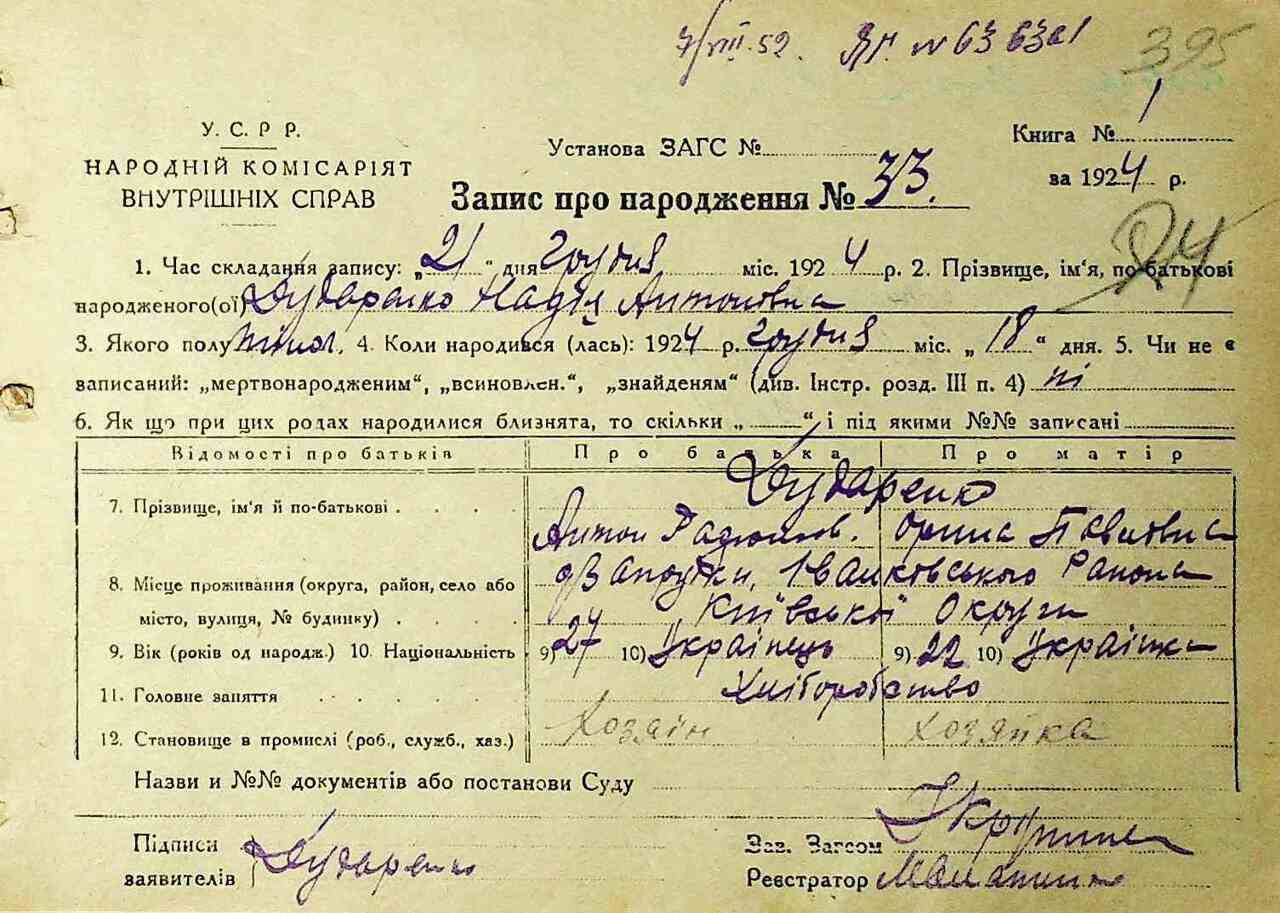 7/VIII-52. Як. № 63 6301 395
У. С. Р Р.
НАРОДНІЙ КОМІСАРІЯТ
ВНУТРІШНІХ СПРАВ
Установа ЗАГС №
Книга № 1
за 1924 р.
Запис про народження № 33.
24
1. Час складання запису: „21" дня Грудня міс. 1924 р. 2. Прізвище, ім'я, по-батькові
народженого(ої) Дударенко Надія Антоновна
3. Якого полу жіноч. 4. Коли народився (лась): 1924 р. Грудня міс. „18" дня. 5. Чи не є
записаний: „мертвонародженим", „всиновлен.", „знайденям" (див. Інстр. розд. III п. 4) ні
6. Як що при цих родах народилися близнята, то скільки „ " і під якими №№ записані
Відомості про батьків Про батька Про матір
Дударенко
7. Прізвище, ім'я й по-батькові . . . .
Антон Радионов. Орина Павловна
8. Місце проживання (округа, район, село або
Іванковського Района
місто, вулиця, № будинку) . . . . Київської Округи
9. Вік (років од народж.) 10. Національність 9) 27 10) Українець 9) 22 10) Українка
11. Головне заняття . . . . . Хліборобство
12. Становище в промислі (роб., служб., хаз.) Хозяїн Хозяйка
Назви и №№ документів або постанови Суду
Підписи
заявителів Дударенко
Зав. Загсом
Реєстратор